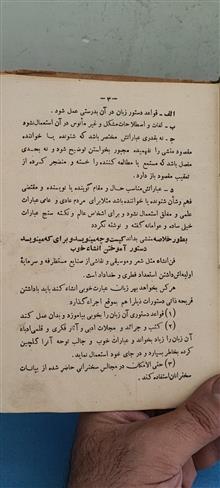 ـ ۳ ـ
الف ـ قواعد دستور زبان در آن بدرستی عمل شود .
ب ـ لغات و اصطلاحات مشکل و غیر مأنوس در آن استعمال نشود
ج ـ نه بقدری عباراتش مختصر باشد که شنونده یا خواننده
مقصود منشی را نفهمیده مجبور بخواستن توضیح شود و نه بحدی
مفصل باشد که مستمع یا مطالعه کننده را خسته و منضجر کرده از
تعقیب مقصود باز دارد .
د ـ عباراتش مناسب حال و مقام گوینده یا نویسنده و مقتضی
فهم و شأن شنونده یا خواننده باشد مثلا برای مردم عادی و عامی عبارات
علمی و مغلق استعمال نشود و برای اشخاص عالم و نکته سنج عبارات
خیلی ساده و عوامانه گفته و نوشته نگردد
بطور خلاصه منشی بداند کیست و چه مینویسد و برای که مینویسد
دستور آموختن انشاء خوب
فن انشاء مثل شعر و موسیقی و نقاشی از صنایع مستظرفه و سرمایهٔ
اولیه‌اش داشتن استعداد فطری و خداداد است .
هر کس بخواهد بهر زبان، عبارت خوبی انشاء کند باید باداشتن
قریحه ذاتی دستورات ذیل را هم بموقع اجراء گذارد
(۱) قواعد دستوری آن زبان را بخوبی بیاموزد و بدان عمل کند
(۲) کتب و جرائد و مجلات ادبی و آثار فکری و قلمی ادباء
آن زبان را زیاد بخواند و عبارات خوب و جالب توجه آنرا گلچین
کرده بخاطر بسپارد و در جای خود استعمال نماید .
(۳) حتی الامکان در مجالس سخنرانی حاضر شده از بیانات
سخنرانان استفاده کند .